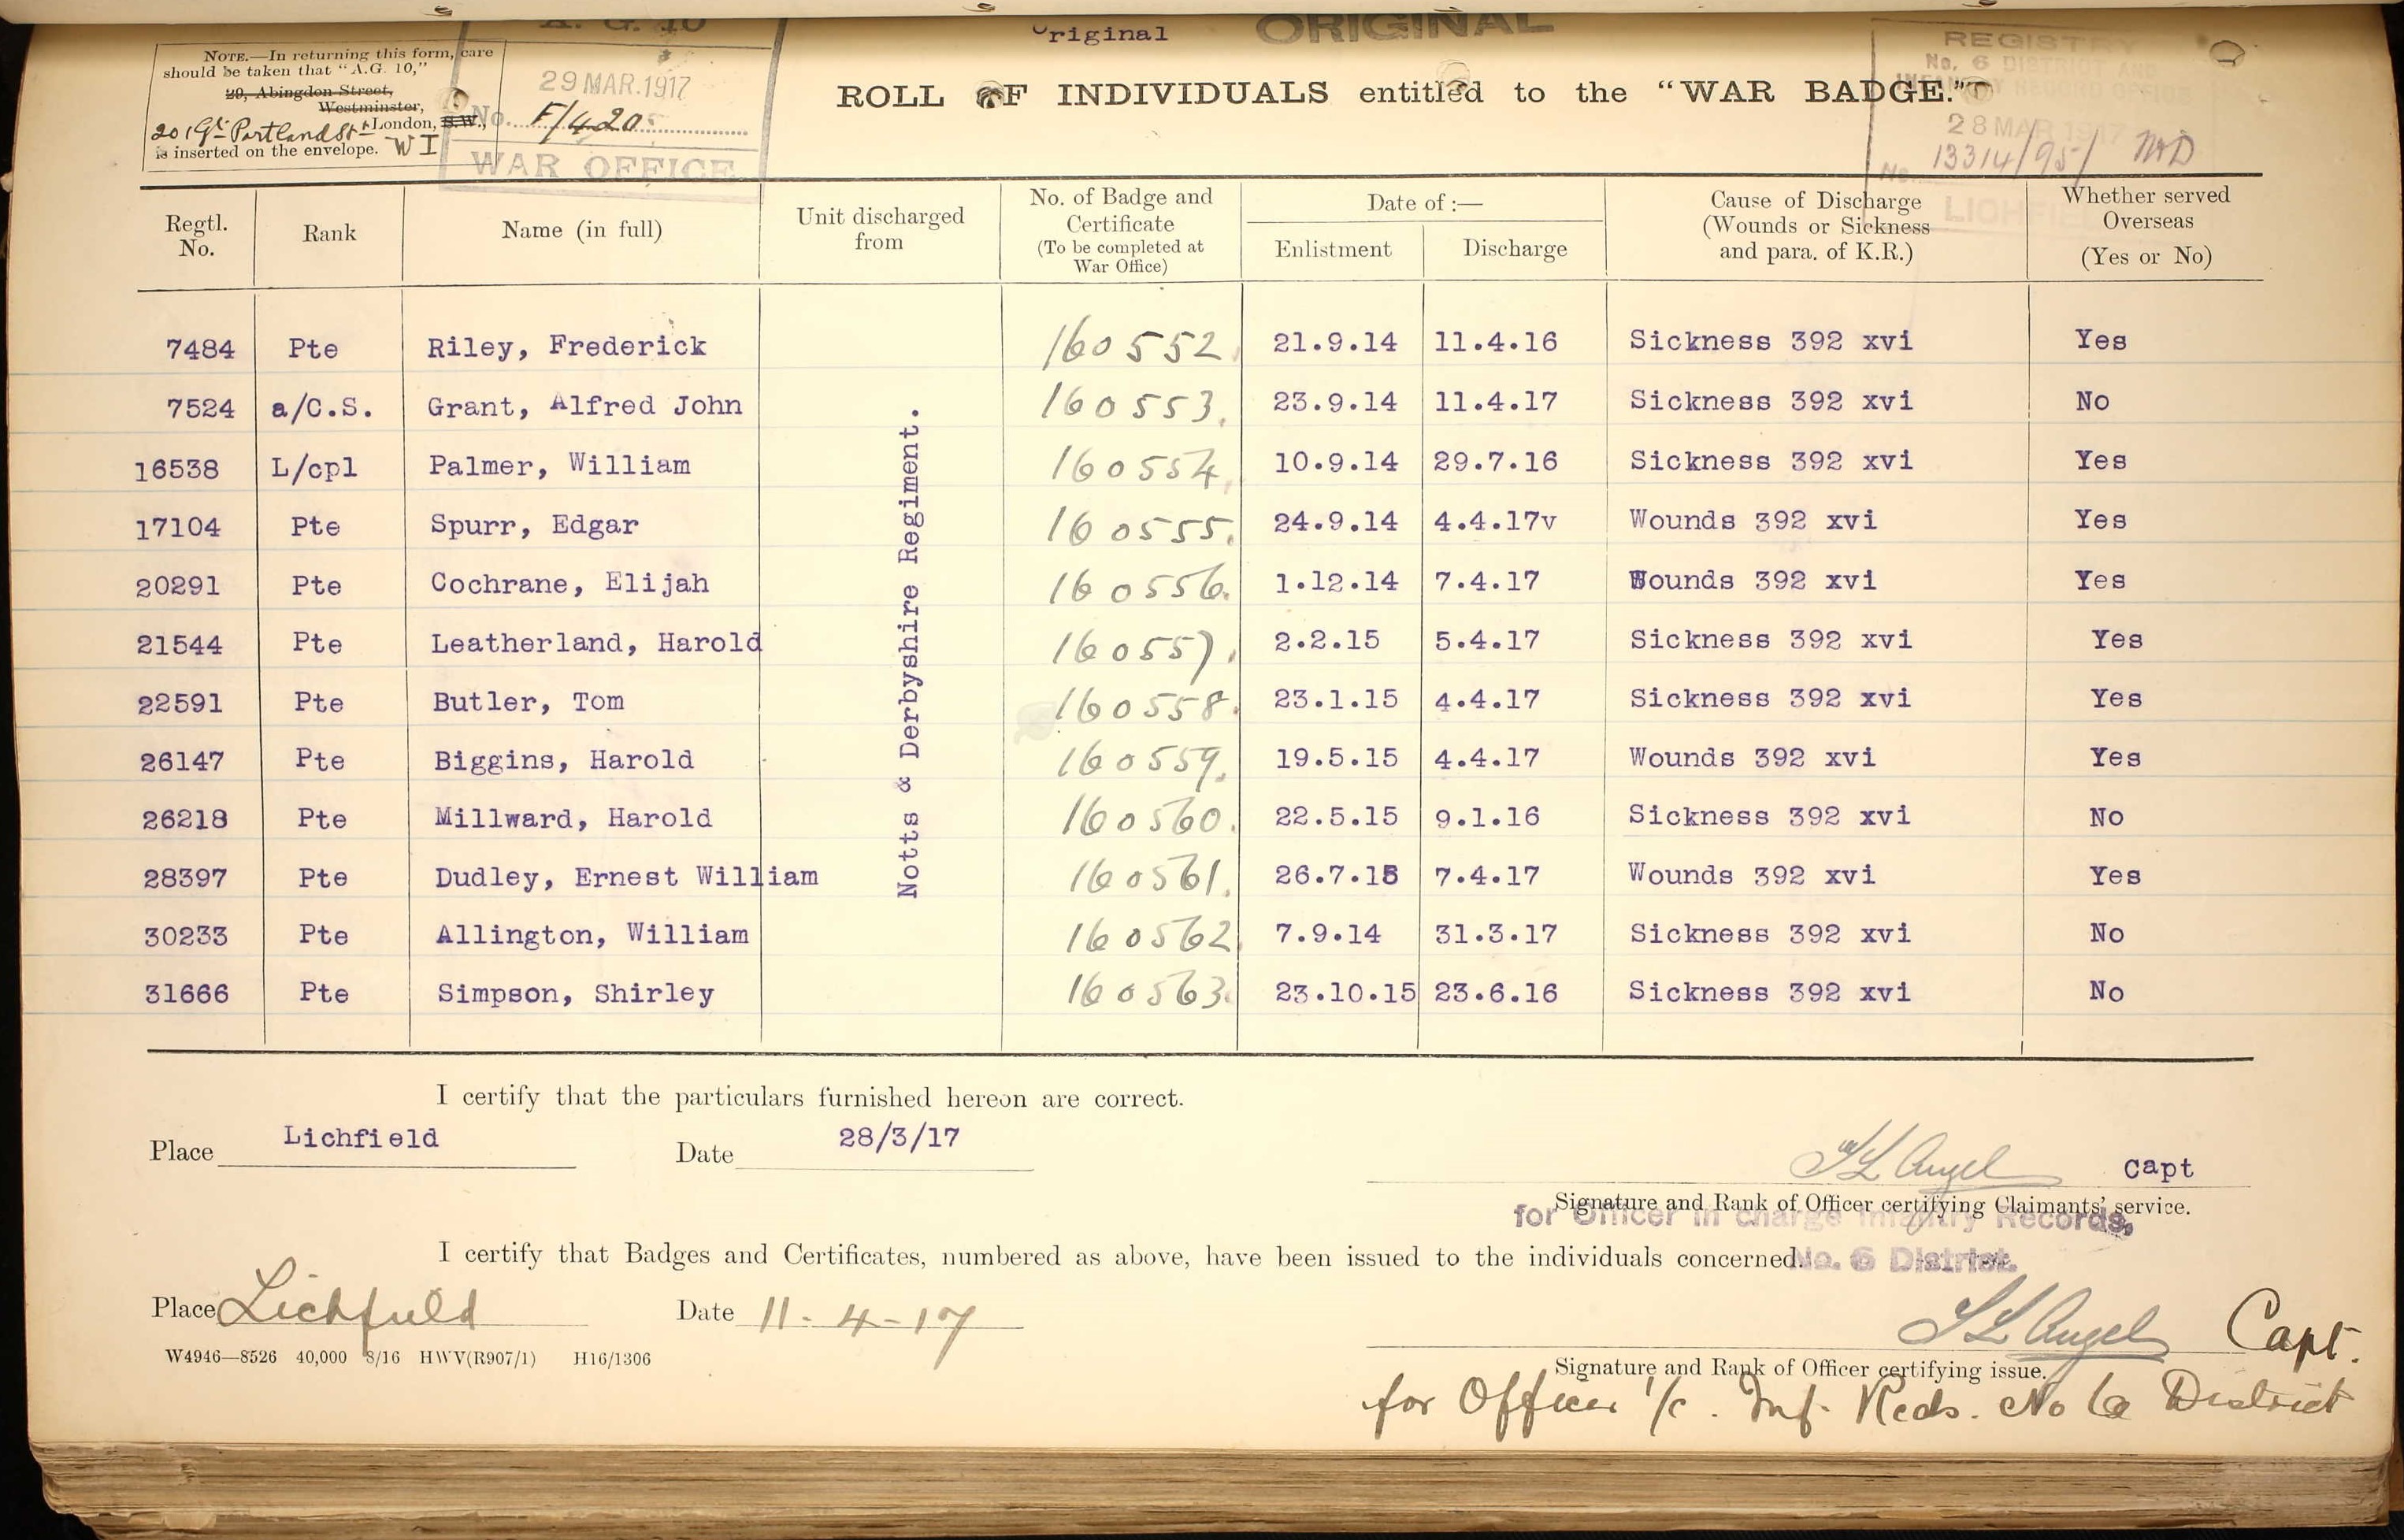 A. G. 10
Original
ORIGINAL
NOTE.—In returning this form, care
should be taken that "A.G. 10,"
29, Abingdon Street,
Westminster,
201 Gt. Portland St London, S.W.,
is inserted on the envelope. W I
29 MAR.1917
No. F/420
WAR OFFICE
REGISTRY
No. 6 DISTRICT AND
INFANTRY RECORD OFFICE
28 MAR 1917
No. 13314/95/
LICHFIELD
ROLL OF INDIVIDUALS entitled to the "WAR BADGE."
Regtl. No. Rank Name (in full) Unit discharged from No. of Badge and Certificate (To be completed at War Office) Date of :— Enlistment Discharge Cause of Discharge (Wounds or Sickness and para. of K.R.) Whether served Overseas (Yes or No)
Notts & Derbyshire Regiment.
7484 Pte Riley, Frederick 160552. 21.9.14 11.4.16 Sickness 392 xvi Yes
7524 a/C.S. Grant, Alfred John 160553. 23.9.14 11.4.17 Sickness 392 xvi No
16538 L/cpl Palmer, William 160554. 10.9.14 29.7.16 Sickness 392 xvi Yes
17104 Pte Spurr, Edgar 160555. 24.9.14 4.4.17v Wounds 392 xvi Yes
20291 Pte Cochrane, Elijah 160556. 1.12.14 7.4.17 Wounds 392 xvi Yes
21544 Pte Leatherland, Harold 160557. 2.2.15 5.4.17 Sickness 392 xvi Yes
22591 Pte Butler, Tom 160558. 23.1.15 4.4.17 Sickness 392 xvi Yes
26147 Pte Biggins, Harold 160559. 19.5.15 4.4.17 Wounds 392 xvi Yes
26218 Pte Millward, Harold 160560. 22.5.15 9.1.16 Sickness 392 xvi No
28397 Pte Dudley, Ernest William 160561. 26.7.15 7.4.17 Wounds 392 xvi Yes
30233 Pte Allington, William 160562. 7.9.14 31.3.17 Sickness 392 xvi No
31666 Pte Simpson, Shirley 160563. 23.10.15 23.6.16 Sickness 392 xvi No
I certify that the particulars furnished hereon are correct.
Place Lichfield Date 28/3/17
Angel Capt
Signature and Rank of Officer certifying Claimants' service.
for Officer in charge Infantry Records,
No. 6 District.
I certify that Badges and Certificates, numbered as above, have been issued to the individuals concerned.
Place Lichfield Date 11-4-17
Angel Capt.
Signature and Rank of Officer certifying issue.
for Officer i/c. Inf. Recds. No 6 District
W4946—8526 40,000 8/16 HWV(R907/1) H16/1306